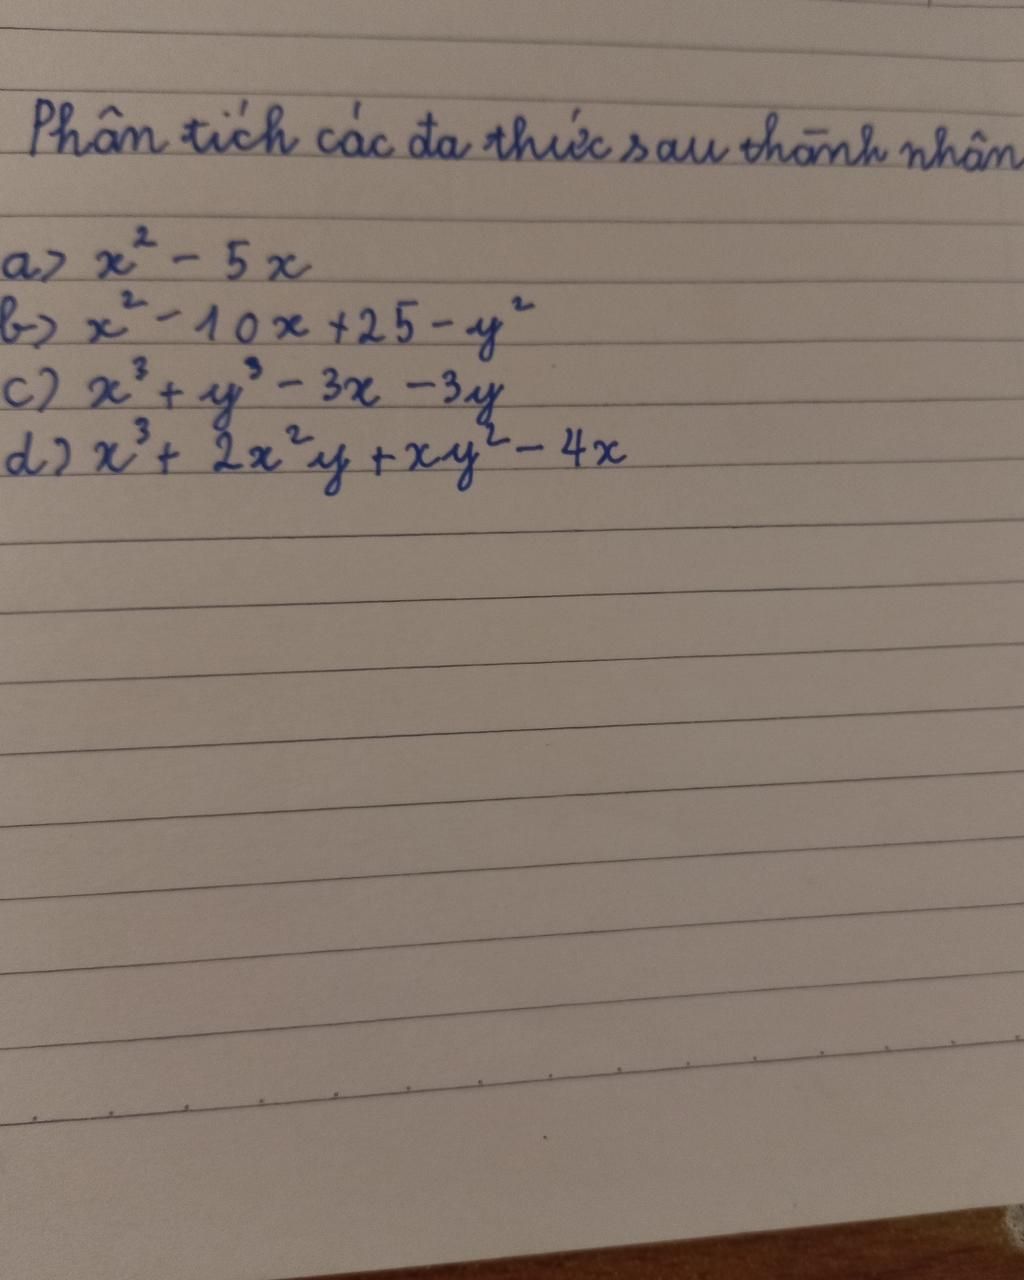 Phân tích các đa thức sau thành nhân
a) x² - 5x
b) x² - 10x + 25 - y²
c) x³ + y³ - 3x - 3y
d) x³ + 2x²y + xy² - 4x